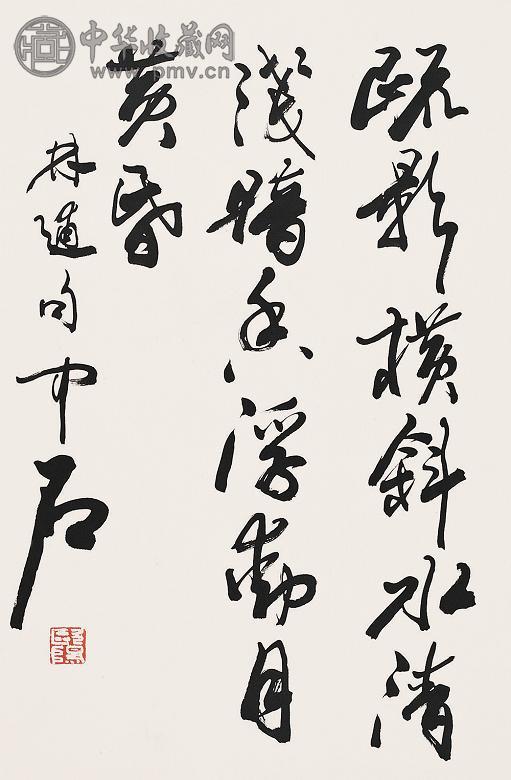 疏影横斜水清
淺暗香浮動月
黄昏
林逋句中石
中华收藏网
www.pmv.cn